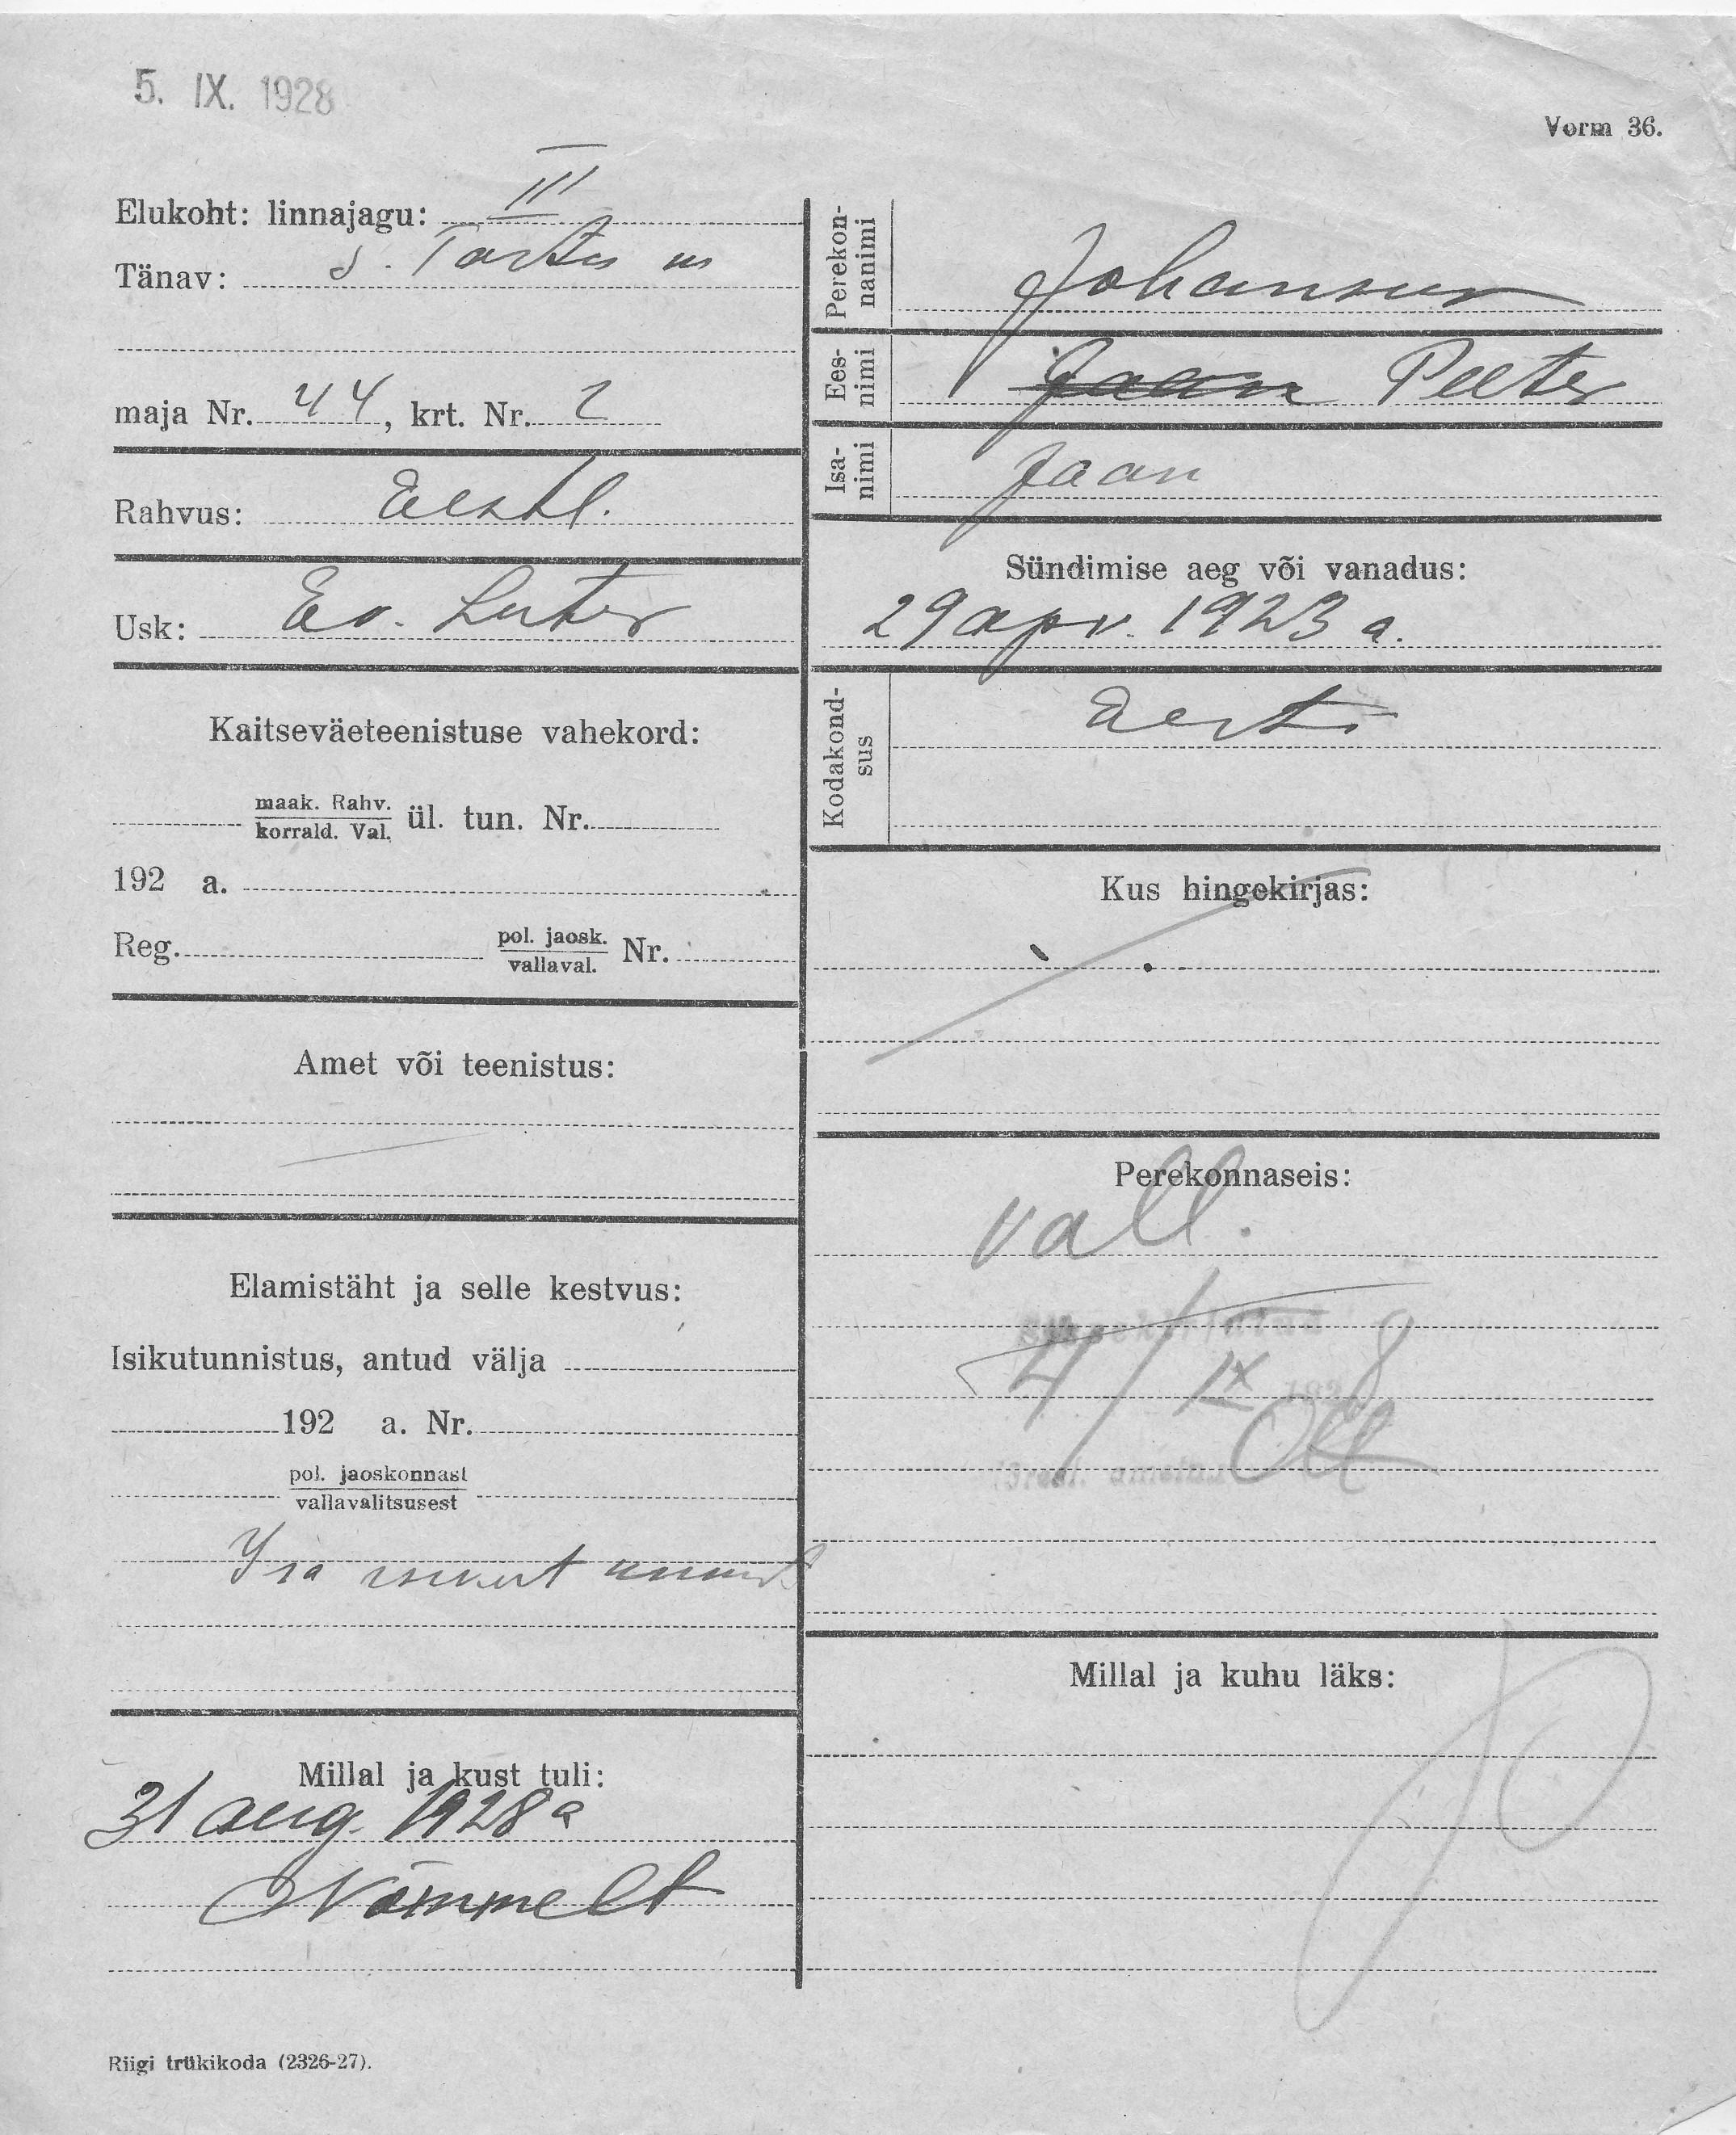 5. IX. 1928
Vorm 36.
Elukoht: linnajagu: III
Tänav: S. Tartu m
maja Nr. 44, krt. Nr. 2
Rahvus: Eestl.
Usk: Ev. Luter
Kaitseväeteenistuse vahekord:
maak. Rahv.
korrald. Val. ül. tun. Nr.
192 a.
Reg. pol. jaosk.
vallaval. Nr.
Amet või teenistus:
Elamistäht ja selle kestvus:
Isikutunnistus, antud välja
192 a. Nr.
pol. jaoskonnast
vallavalitsusest
Isa
Millal ja kust tuli:
31 aug. 1928 a
Nõmmelt
Riigi trükikoda (2326-27).
Perekon-
nanimi
Johanson
Ees-
nimi
Jaan Peeter
Isa-
nimi
Jaan
Sündimise aeg või vanadus:
29 apr. 1923 a.
Kodakond-
sus
Eesti
Kus hingekirjas:
Perekonnaseis:
vall.
4/IX 8
Millal ja kuhu läks:
Jo